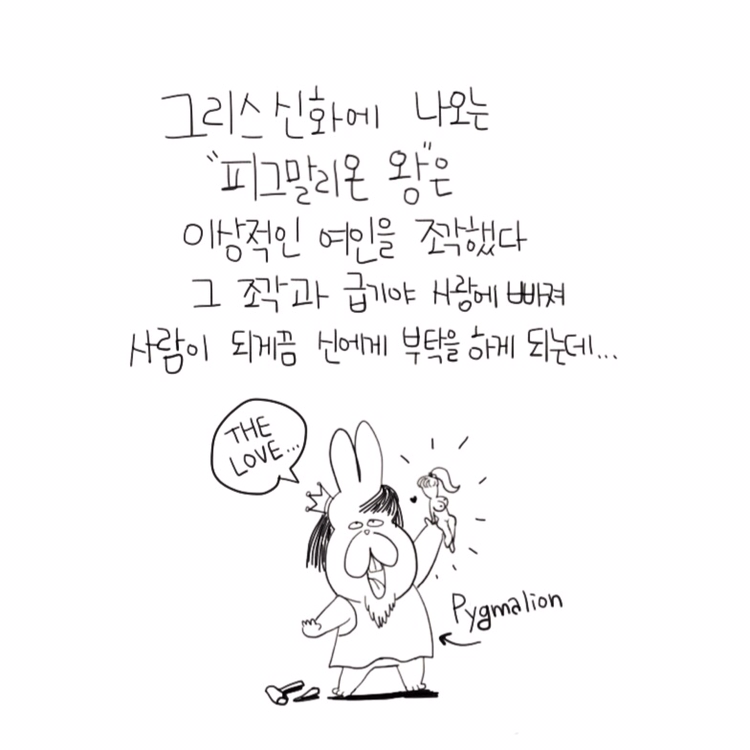 그리스 신화에 나오는
"피그말리온 왕"은
이상적인 여인을 조각했다
그 조각과 급기야 사랑에 빠져
사람이 되게끔 신에게 부탁을 하게 되는데...
THE
LOVE...
Pygmalion